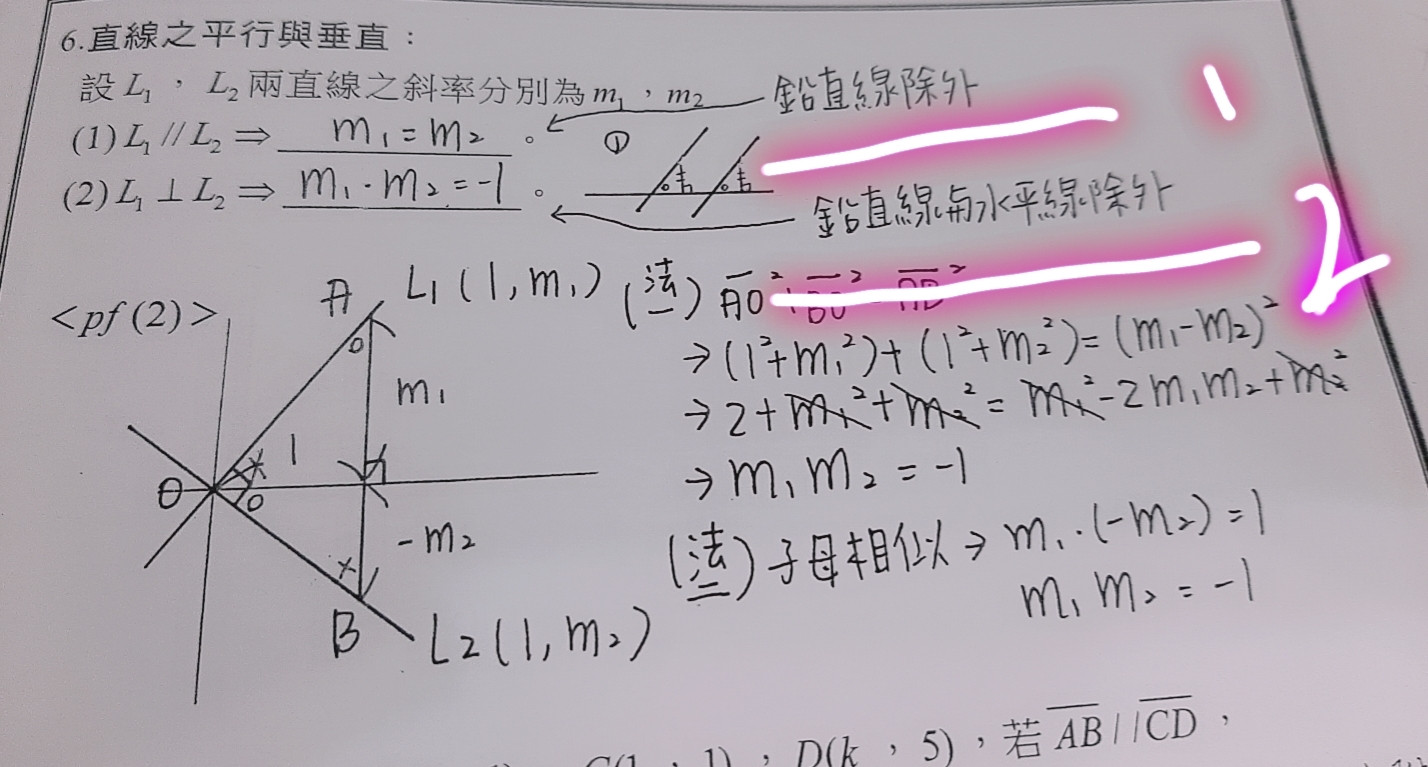 6.直線之平行與垂直：
設 L₁ ， L₂ 兩直線之斜率分別為 m₁ ，m₂
鉛直線除外
1
(1) L₁ // L₂ ⇒ m₁ = m₂ 。
①
(2) L₁ ⊥ L₂ ⇒ m₁ · m₂ = -1 。
鉛直線與水平線除外
2
<pf (2)>
A L₁ (1, m₁)
m₁
1
O
-m₂
B L₂ (1, m₂)
(法一) AO² + BO² = AB²
→ (1²+m₁²)+(1²+m₂²)=(m₁-m₂)²
→ 2+m₁²+m₂² = m₁²-2m₁m₂+m₂²
→ m₁m₂ = -1
(法二) 子母相似 → m₁·(-m₂)=1
m₁m₂ = -1
D(k ， 5) ，若 AB // CD ，